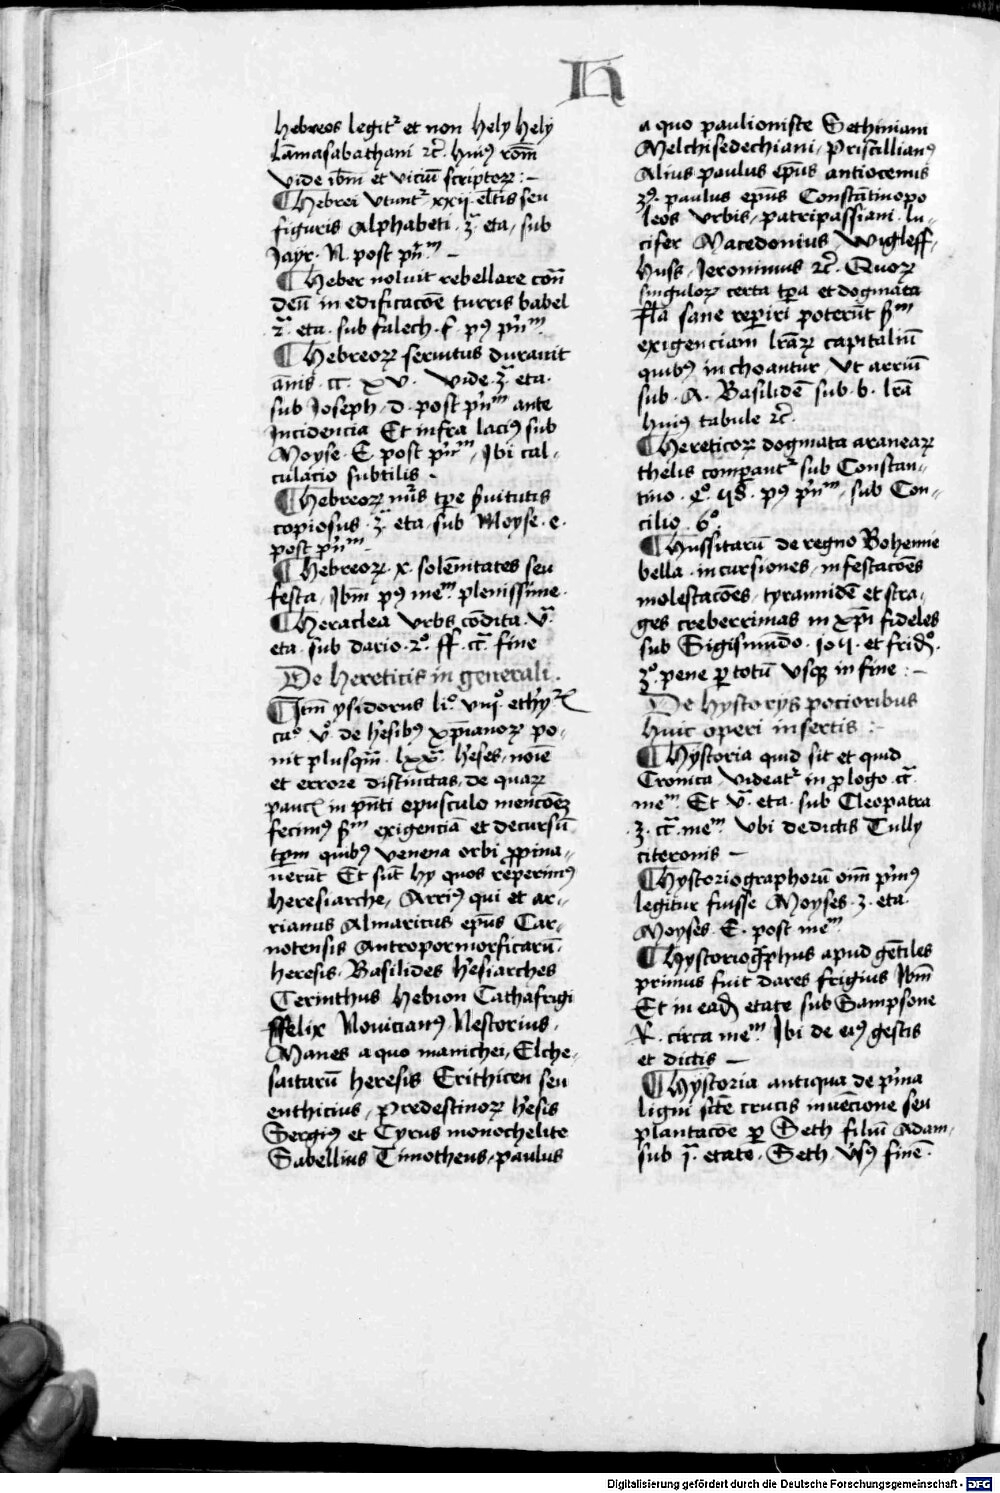 H
hebreos legitʳ et non hely hely
lāmasabathani ⁊c̃. huiꝰ rōm̄
vide ibm̄ et viciū scriptorꝝ :–
¶ Hebrei vtuntʳ xxij eltīs seu
figuris alphabeti . 3ᵃ. eta, sub
Jayr . N. post pn̄ᵐ. –
¶ Heber noluit rebellare cōn̄
deū in edificacōe turris babel
.2ᵃ. eta . sub falech . f. pꝰ pn̄ᵐ.
¶ Hebreorꝝ seruitus durauit
ānis . cc. xv. Vide . 3ᵃ. eta.
sub Joseph . d. post pn̄ᵐ ante
Incidencia Et infra laciꝰ sub
Moyse . E. post pn̄ᵐ, Ibi cal-
culacio subtilis –
¶ Hebreorꝝ nūs tpe s̄uitutis
copiosus . 3ᵃ. eta, sub Moyse . e.
post pn̄ᵐ.
¶ Hebreorꝝ . x. solēnitates seu
festa, Ibm̄ pꝰ meᵐ plenissime.
¶ Heraclea vrbs cōdita . vᵃ.
eta . sub dario . 2°. ff. cc̄ᵃ fine
De hereticis in generali.
¶ Itm̄ ysidorus li° viij° ethyʳᵉ
ca° v° de hēsibꝰ xp̄ianorꝝ po-
nit plusqm̄ . lxxᵃ. hēses, noīe
et errore distinctas, de quarꝝ
pauc̄ in pn̄ti opusculo mencōeꝫ
fecimꝰ s̄ᵐ exigenciā et decursū
tp̄m quibꝰ venena orbi ꝓpina-
uerūt Et sūt hy quos reperimꝰ
heresiarche, Arriꝰ qui et ar-
rianus Almaricus ep̄us Car-
notensis Antropormorficarū.
heresis . Basilides hēsiarches
Cerinthus Hebion Cathafrigi
ffelix Nouicianꝰ . Nestorius.
Manes a quo manichei, Elche-
saitarū heresis Erithicen seu
enthicius, predestinorꝝ hēsis
Sergiꝰ et Cyrus monochelite
Sabellius Timotheus, paulus
a quo paulioniste Sethiniani
Melchisedechiani, Priscillianꝰ
Alius paulus ep̄us antiocenus
3ꝰ. paulus ep̄us Constātinopo
leos vrbis, patripassiani . lu-
cifer Macedonius, Wigleff,
Huss, Jeronimus ⁊c̃. Quorꝝ
singulorꝝ certa tp̄a et dogmata
fl̄a sane reperiri poterūt s̄ᵐ
exigenciam lrārꝝ capitaliū
quibꝰ inchoantur, Vt arriū
sub . A. Basilidē sub . b. lrā
huiꝰ tabule ⁊c̃.
¶ Hereticorꝝ dogmata aranearꝝ
thelis comparantʳ sub Constan-
tino . e°. 48. pꝰ pn̄ᵐ, sub Con-
cilio . 6°.
¶ Hussitarū de regno Bohemie
bella . incursiones, infestacōes
molestacōes, tyrannidē et stra-
ges creberrimas in xp̄i fideles
sub Sigismūdo . 104. et frid°.
3°. pene ꝑ totū vsqꝫ in fine :–
De hystorijs pocioribus
huic operi insertis :–
¶ Hystoria quid sit et quid
Cronica videatʳ in ꝓlogo . cc̄ᵃ.
meᵐ. Et vᵃ. eta . sub Cleopatra
.3. cc̄ᵃ. meᵐ. Vbi de dictis Tully
citeronis –
¶ Hystoriographorū oīm pʳimꝰ
legitur fuisse Moyses . 3. eta.
Moyses . E. post meᵐ.
¶ Hystoriogphus apud gētiles
primus fuit dares frigius Ibm̄
Et in ead̄ etate sub Sampsone
R. circa meᵐ. Ibi de eiꝰ gestis
et dictis –
¶ Hystoria antiqua de pʳima
ligni sc̄te crucis inuēcione seu
plantacōe ꝑ Seth filiū Adam,
sub .1ᵃ. etate . Seth . vʳsꝰ finē.
Digitalisierung gefördert durch die Deutsche Forschungsgemeinschaft - DFG